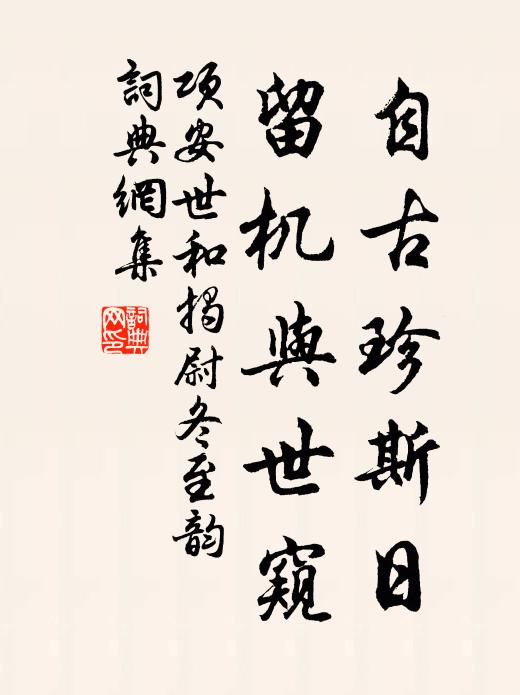 自古珍斯日
留机與世窺
項安世和揭尉冬至韵
詞典網集
詞典网印